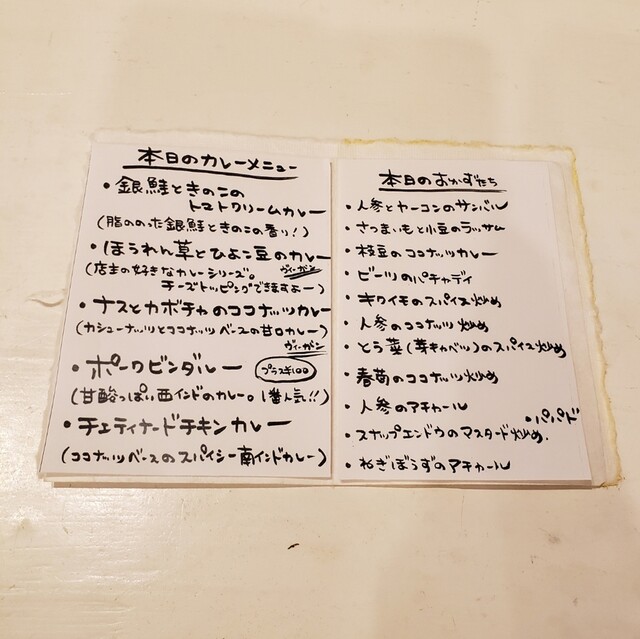 本日のカレーメニュー
・銀鮭ときのこの
トマトクリームカレー
(脂ののった銀鮭ときのこの香り!)
・ほうれん草とひよこ豆のカレー
(店主の好きなカレーシリーズ。 ヴィーガン
チーズトッピングできますよー)
・ナスとカボチャのココナッツカレー
(カシューナッツとココナッツベースの甘口カレー)
ヴィーガン
・ポークビンダルー プラス¥100
(甘酸っぱい西インドのカレー。1番人気!!)
・チェティナードチキンカレー
(ココナッツベースのスパイシー南インドカレー)
本日のおかずたち
・人参とヤーコンのサンバル
・さつまいもと小豆のラッサム
・枝豆のココナッツカレー
・ビーツのパチャディ
・キクイモのスパイス炒め
・人参のココナッツ炒め
・とう菜(芽キャベツ)のスパイス炒め
・春菊のココナッツ炒め
・人参のアチャール
・パパド
・スナップエンドウのマスタード炒め.
・ねぎぼうずのアチャール